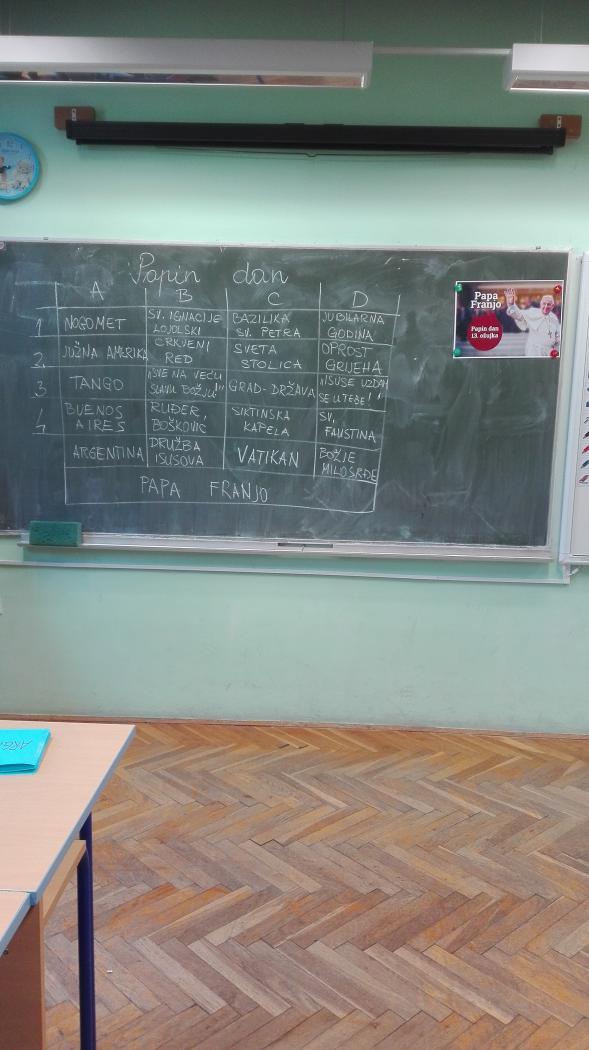 Papin dan
A B C D
1 NOGOMET
SV. IGNACIJE
LOJOLSKI
BAZILIKA
SV. PETRA
JUBILARNA
GODINA
2. JUŽNA AMERIKA
CRKVENI
RED
SVETA
STOLICA
OPROST
GRIJEHA
3 TANGO
"SVE NA VEĆU
SLAVU BOŽJU!"
GRAD-DRŽAVA
"ISUSE UZDAM
SE U TEBE!"
4 BUENOS
AIRES
RUĐER,
BOŠKOVIĆ
SIKTINSKA
KAPELA
SV.
FAUSTINA
ARGENTINA
DRUŽBA
ISUSOVA
VATIKAN
BOŽJE
MILOSRĐE
PAPA FRANJO
Papa
Franjo
Papin dan
13. ožujka